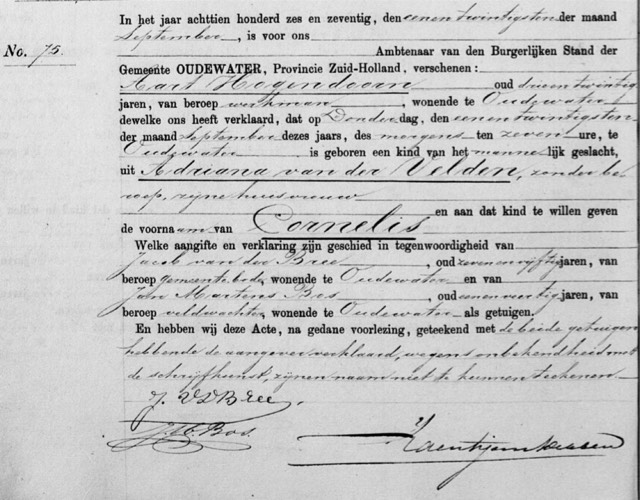 In het jaar achttien honderd zes en zeventig, den eenen twintigsten der maand
September, is voor ons
Ambtenaar van den Burgerlijken Stand der
No. 75.
Gemeente OUDEWATER, Provincie Zuid-Holland, verschenen:
Aart Hogendoorn oud drieentwintig
jaren, van beroep werkman, wonende te Oudewater
dewelke ons heeft verklaard, dat op Donderdag, den eenen twintigsten
der maand September dezes jaars, des morgens ten zeven ure, te
Oudewater is geboren een kind van het mannelijk geslacht,
uit Adriana van der Velden, zonder be
roep, zijne huisvrouw
en aan dat kind te willen geven
de voornaam van Cornelis
Welke aangifte en verklaring zijn geschied in tegenwoordigheid van
Jacob van der Bree, oud zevenenvijftig jaren, van
beroep gemeentebode, wonende te Oudewater en van
Jan Martens Bos, oud eenenveertig jaren, van
beroep veldwachter, wonende te Oudewater als getuigen.
En hebben wij deze Acte, na gedane voorlezing, geteekend met de beide getuigen
hebbende de aangever verklaard, wegens onbekendheid met
de schrijfkunst, zijnen naam niet te kunnen teekenen
J. VD Bree.
J. M. Bos.